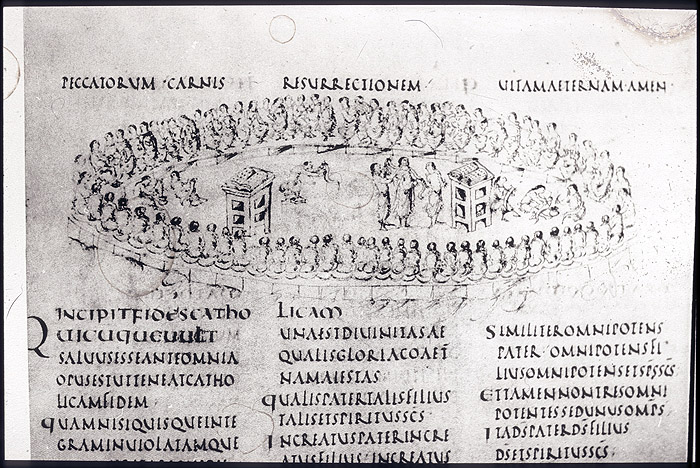 PECCATORUM · CARNIS RESURRECTIONEM UITAMAETERNAM · AMEN
INCIPIT FIDES CATHOLICAM
QUICUQUEUULT
SALUUSESSEANTEOMNIA
OPUSESTUTTENEATCATHO
LICAMFIDEM
QUAMNISIQUISQUEINTE
GRAMINUIOLATAMQUE
UNAESTDIUINITASAE
QUALISGLORIACOAET
NAMAIESTAS
QUALISPATERTALISFILIUS
TALISETSPIRITUSSCS
INCREATUSPATERINCRE
ATUSFILIUS INCREATUS
SIMILITEROMNIPOTENS
PATER OMNIPOTENSFI
LIUSOMNIPOTENSETSPSSCS
ETTAMENNONTRESOMNI
POTENTESSEDUNUSOMPS
ITADSPATERDSFILIUS
DSETSPIRITUSSCS